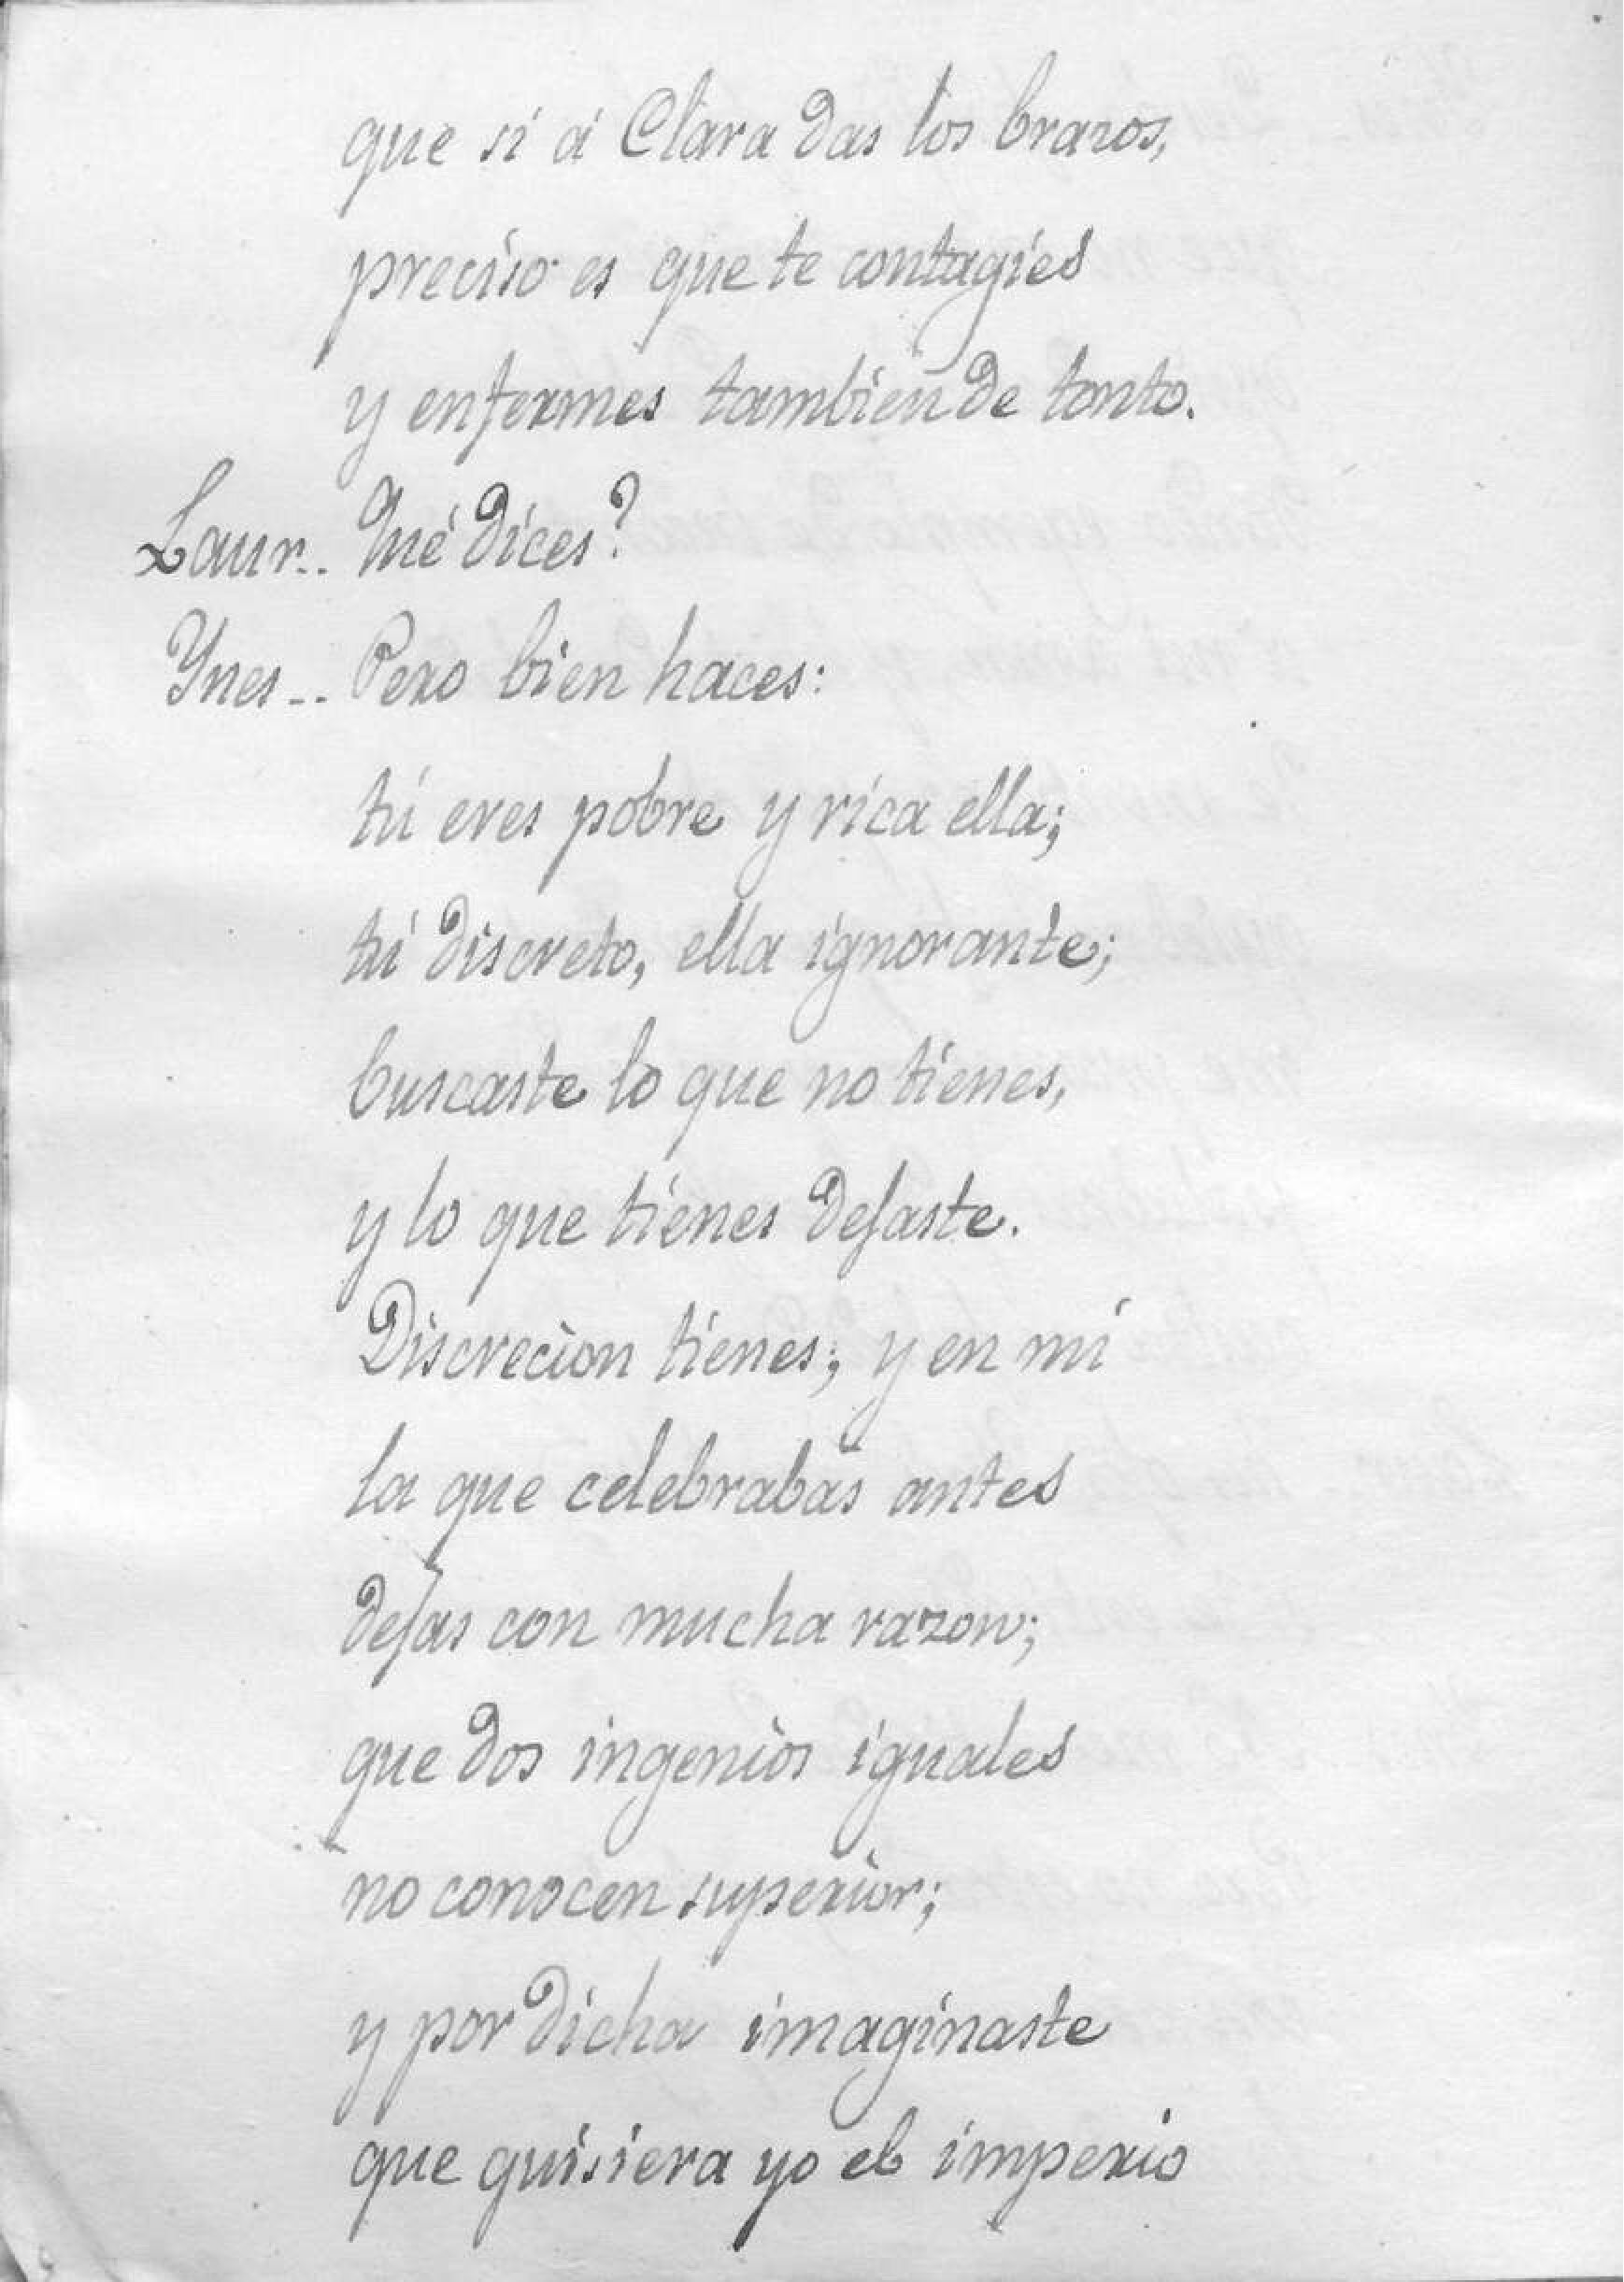 que si á Clara das los brazos,
preciso es que te contagies
y enfermes tambien de tonto.
Laur.. Qué dices?
Ynes.. Pero bien haces:
tú eres pobre y rica ella;
tú discreto, ella ignorante;
buscaste lo que no tienes,
y lo que tienes dejaste.
Discrecion tienes; y en mí
la que celebrabas antes
dejas con mucha razon;
que dos ingenios iguales
no conocen superior;
y por dicha imaginaste
que quisiera yo el imperio